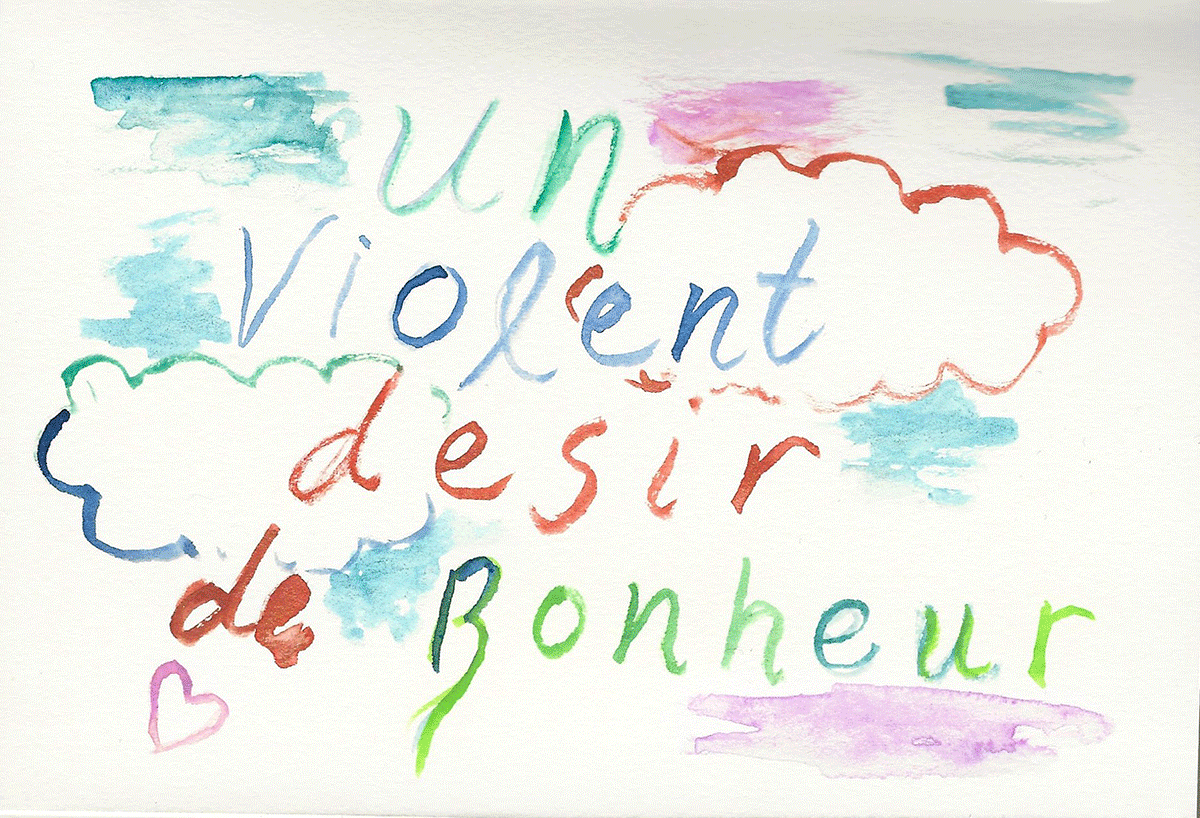 un
violent
desir
de Bonheur